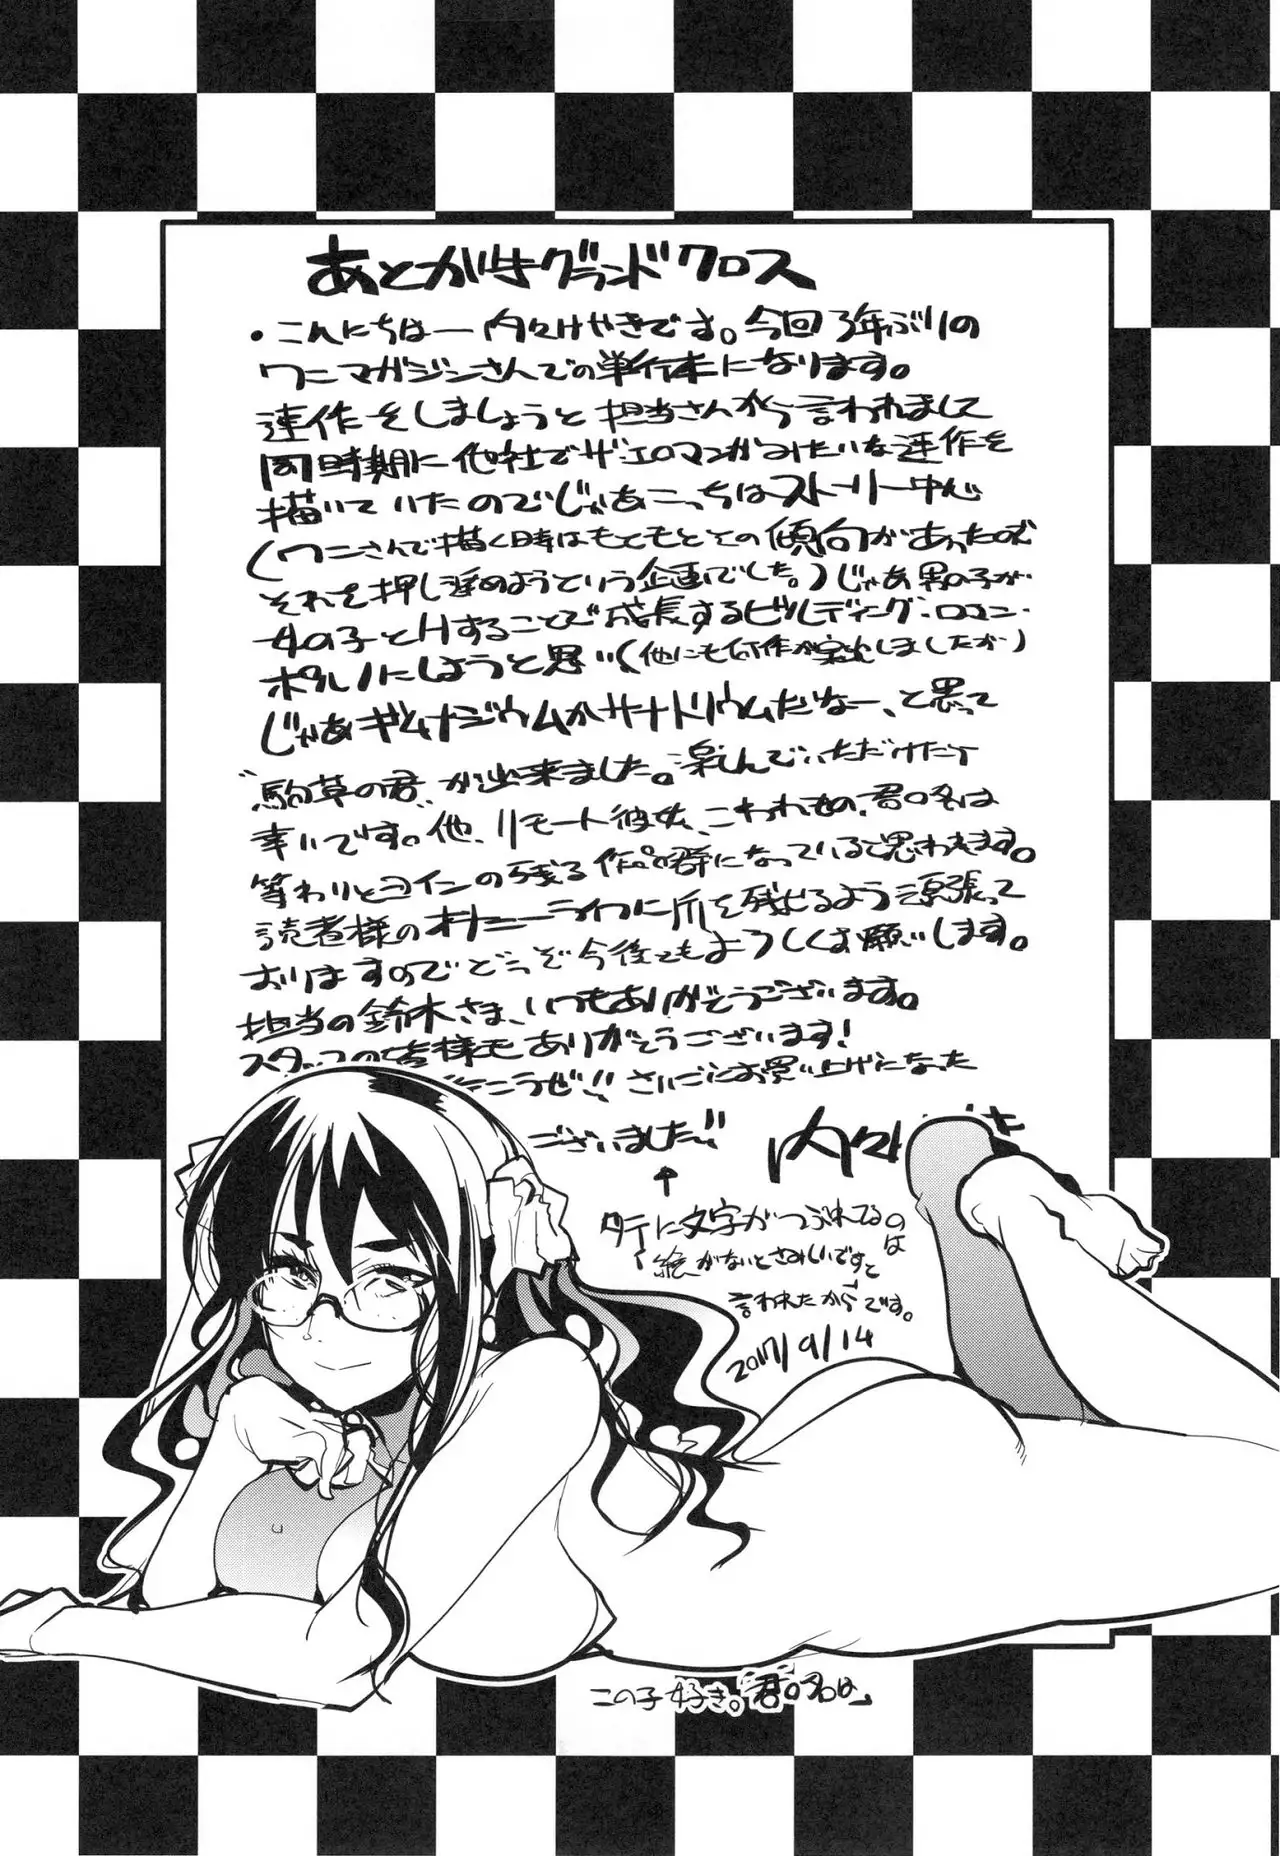 あとがきグランドクロス
・こんにちはー内々けやきです。今回3年ぶりの
ワニマガジンさんでの単行本になります。
連作をしましょうと担当さんから言われまして
同時期に他社でザ・エロマンガみたいな連作を
描いていたのでじゃあこっちはストーリー中心
(ワニさんで描く時はもともとその傾向があったので
それを押し進めようという企画でした。)じゃあ男の子が
女の子とHすることで成長するビルディング・ロマン・
ポルノにしようと思い(他にも何作か案出しましたが)
じゃあギムナジウムかサナトリウムだなー、と思って
"駒草の君"が出来ました。楽しんでいただけたら
幸いです。他、リモート彼女、こわれもの、君の名は
等わりとヨインの残る作品群になっていると思われます。
読者様のオナニーライフに爪を残せるよう頑張って
おりますのでどうぞ今後ともよろしくお願いします。
担当の鈴木さま、いつもありがとうございます。
スタッフの皆様もありがとうございます!
こうぜ!!さいごにお買い上げになった
ございました!!
内々
↑
タテに文字がつぶれてるのは
絵がないとさみしいですと
言われたからです。
2017/9/14
この子好き。"君の名は"